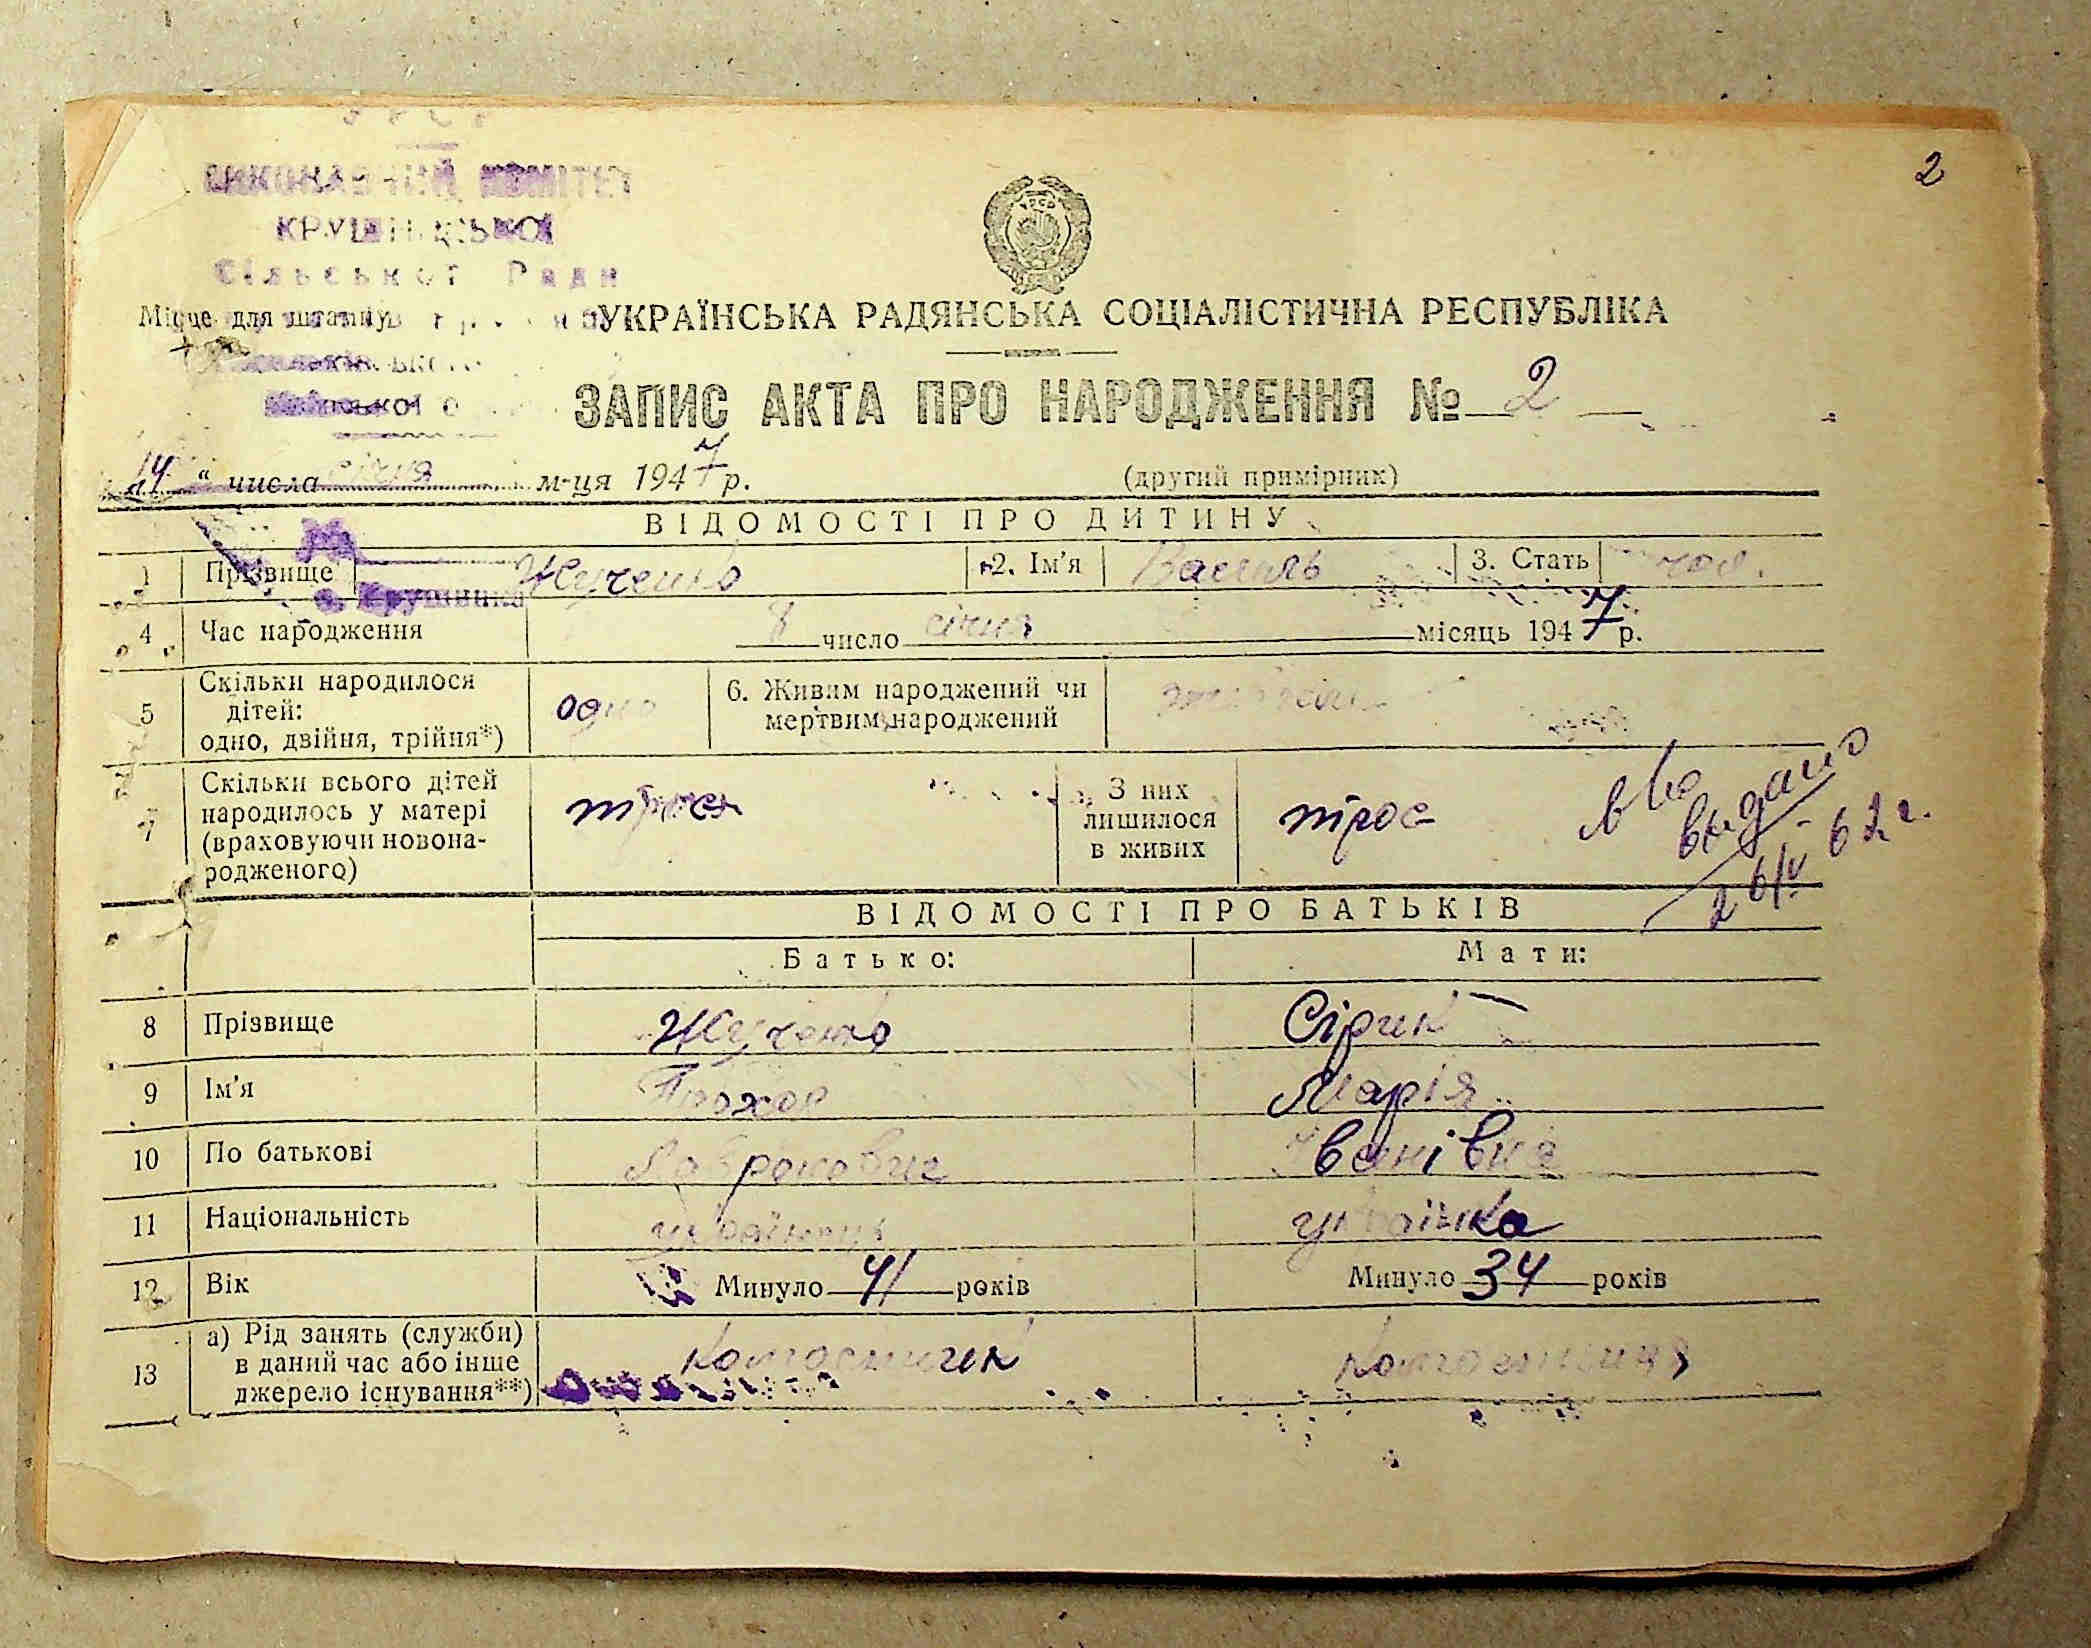 2
УРСР
ВИКОНАВЧИЙ КОМІТЕТ
КРУШИНСЬКОЇ
Сільської Ради
Місце для штампу
УКРАЇНСЬКА РАДЯНСЬКА СОЦІАЛІСТИЧНА РЕСПУБЛІКА
ЗАПИС АКТА ПРО НАРОДЖЕННЯ № 2
„14“ числа січня м-ця 1947 р. (другий примірник)
ВІДОМОСТІ ПРО ДИТИНУ
1 Прізвище Жученко 2. Ім'я Василь 3. Стать чол.
с. Крушинка
4 Час народження 8 число січня місяць 1947 р.
5 Скільки народилося дітей: одно, двійня, трійня*) одно 6. Живим народжений чи мертвим народжений
7 Скільки всього дітей народилось у матері (враховуючи новонародженого) троє З них лишилося в живих троє
видано
26/IV-62 г.
ВІДОМОСТІ ПРО БАТЬКІВ
Батько: Мати:
8 Прізвище Жученко Сірик
9 Ім'я Прохор Марія
10 По батькові Іванівна
11 Національність українець українка
12 Вік Минуло 41 років Минуло 34 років
13 а) Рід занять (служби) в даний час або інше джерело існування**) колгоспник колгоспниця